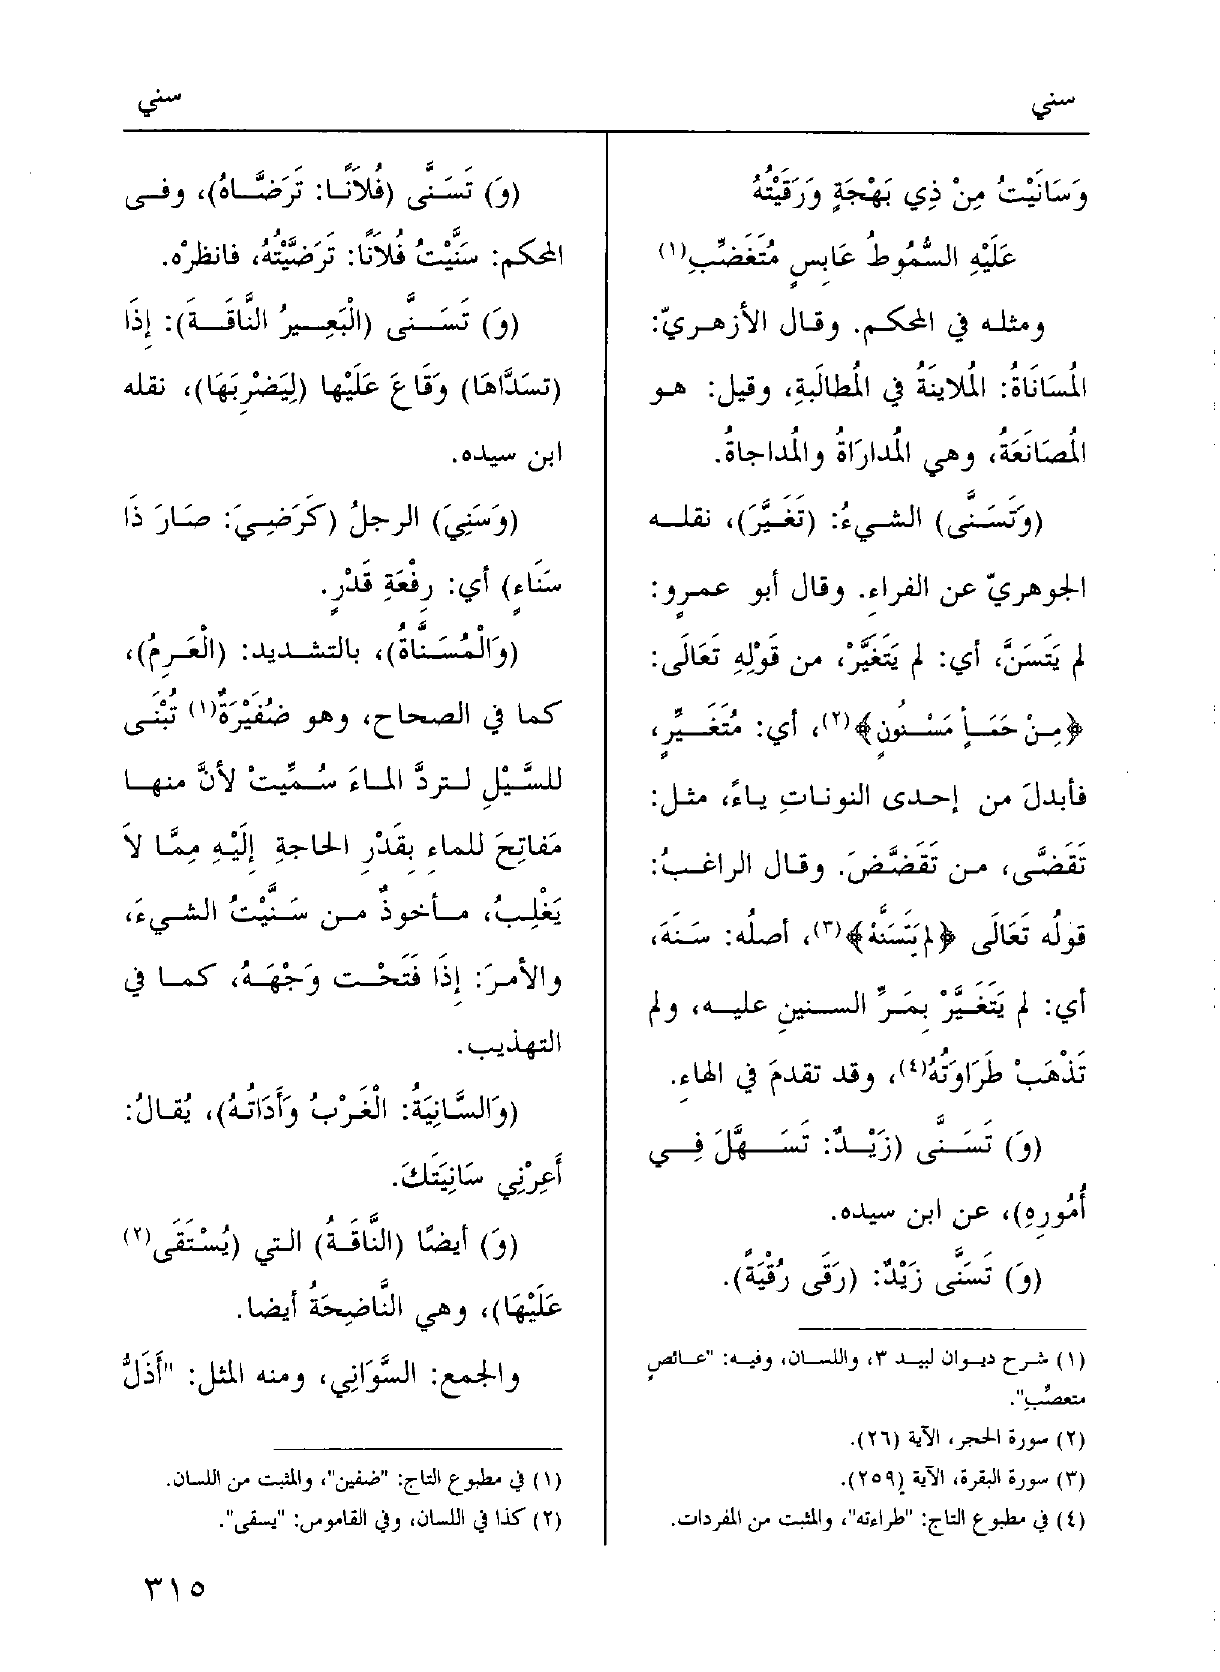 سني
سني
وَسَانَيْتُ مِنْ ذِي بَهْجَةٍ وَرَقَيْتُهُ
عَلَيْهِ السُّمُوطُ عَابِسٍ مُتَغَضِّبِ(١)
ومثله في المحكم. وقال الأزهريّ:
المُسَانَاةُ: المُلاينَةُ في المُطالَبةِ، وقيل: هو
المُصَانَعَةُ، وهي المُدارَاةُ والمُداجاةُ.
(وَتَسَنَّى) الشيءُ: (تَغَيَّرَ)، نقله
الجوهريّ عن الفراءِ. وقال أبو عمرٍو:
لم يَتَسَنَّ، أي: لم يَتَغَيَّرْ، من قَوْلِهِ تَعَالَى:
﴿مِنْ حَمَأٍ مَسْنُونٍ﴾(٢)، أي: مُتَغَيِّرٍ،
فأبدلَ من إحدى النوناتِ ياءً، مثل:
تَقَضَّى، من تَقَضَّضَ. وقال الراغبُ:
قولُه تَعَالَى ﴿لم يَتَسَنَّهْ﴾(٣)، أصلُه: سَنَهَ،
أي: لم يَتَغَيَّرْ بِمَرِّ السنينِ عليه، ولم
تَذْهَبْ طَرَاوَتُهُ(٤)، وقد تقدمَ في الهاءِ.
(وَ) تَسَنَّى (زَيْدٌ: تَسَهَّلَ فِي
أُمُورِهِ)، عن ابن سيده.
(وَ) تَسَنَّى زَيْدٌ: (رَقَى رُقْيَةً).
(١) شرح ديوان لبيد ٣، واللسان، وفيه: "عائصٍ
متعصِّبِ".
(٢) سورة الحجر، الآية (٢٦).
(٣) سورة البقرة، الآية (٢٥٩).
(٤) في مطبوع التاج: "طراءته"، والمثبت من المفردات.
(وَ) تَسَنَّى (فُلاَنًا: تَرَضَّاهُ)، وفى
المحكم: سَنَّيْتُ فُلاَنًا: تَرَضَّيْتُهُ، فانظرْه.
(وَ) تَسَنَّى (الْبَعِيرُ النَّاقَةَ): إذَا
(تسَدَّاهَا) وَقَاعَ عَلَيْها (لِيَضْرِبَهَا)، نقله
ابن سيده.
(وَسَنِيَ) الرجلُ (كَرَضِيَ: صَارَ ذَا
سَنَاءٍ) أي: رِفْعَةِ قَدْرٍ.
(وَالْمُسَنَّاةُ)، بالتشديد: (الْعَرِمُ)،
كما في الصحاح، وهو ضَفِيْرَةٌ(١) تُبْنَى
للسَّيْلِ لتردَّ الماءَ سُمِّيتْ لأنَّ منها
مَفاتِحَ للماءِ بِقَدْرِ الحاجةِ إِلَيْهِ مِمَّا لاَ
يَغْلِبُ، مأخوذٌ من سَنَّيْتُ الشيءَ،
والأمرَ: إذَا فَتَحْت وَجْهَهُ، كما في
التهذيب.
(وَالسَّانِيَةُ: الْغَرْبُ وَأَدَاتُهُ)، يُقالُ:
أَعِرْنِي سَانِيَتَكَ.
(وَ) أيضًا (النَّاقَةُ) التي (يُسْتَقَى(٢)
عَلَيْهَا)، وهي النَّاضِحَةُ أيضا.
والجمع: السَّوَانِي، ومنه المثل: "أَذَلُّ
(١) في مطبوع التاج: "ضفين"، والمثبت من اللسان.
(٢) كذا في اللسان، وفي القاموس: "يسقى".
٣١٥